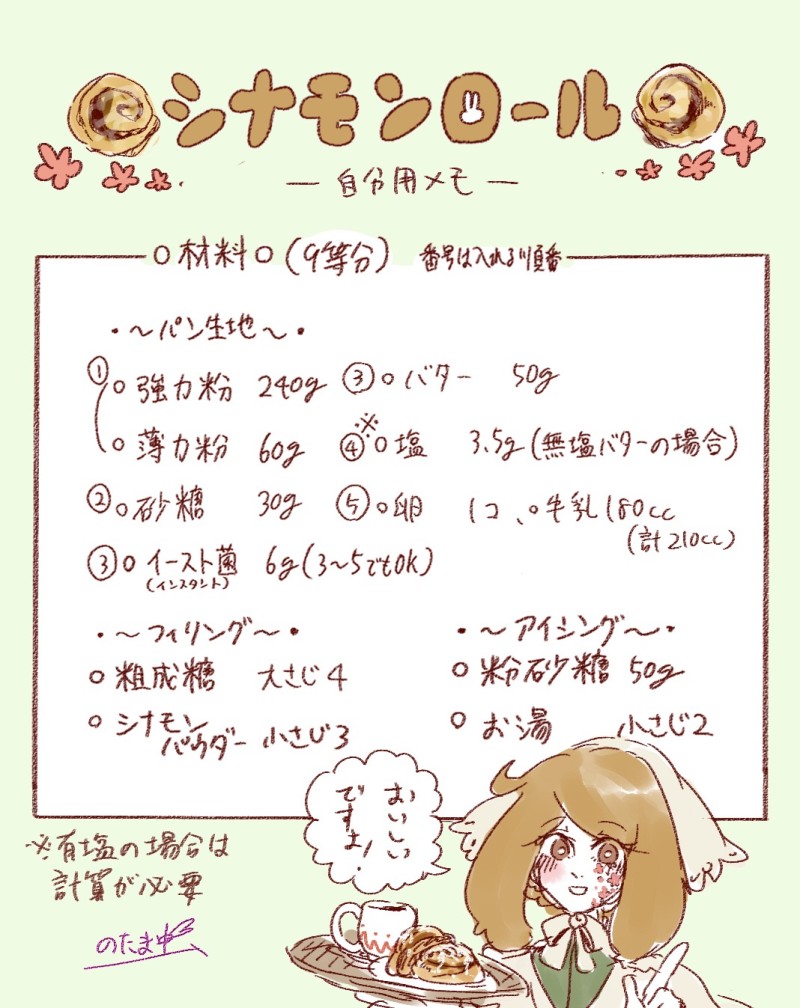 シナモンロール
― 自分用メモ ―
○材料○ (9等分) 番号は入れる順番
・~パン生地~・
① ○ 強力粉 240g
○ 薄力粉 60g
② ○ 砂糖 30g
③ ○ イースト菌 6g(3~5でもOK)
(インスタント)
③ ○ バター 50g
※
④ ○ 塩 3.5g(無塩バターの場合)
⑤ ○ 卵 1コ、○牛乳180cc
(計210cc)
・~フィリング~・
○ 粗成糖 大さじ4
○ シナモン
パウダー 小さじ3
・~アイシング~・
○ 粉砂糖 50g
○ お湯 小さじ2
おいしい
ですよ!
※有塩の場合は
計算が必要
のたま